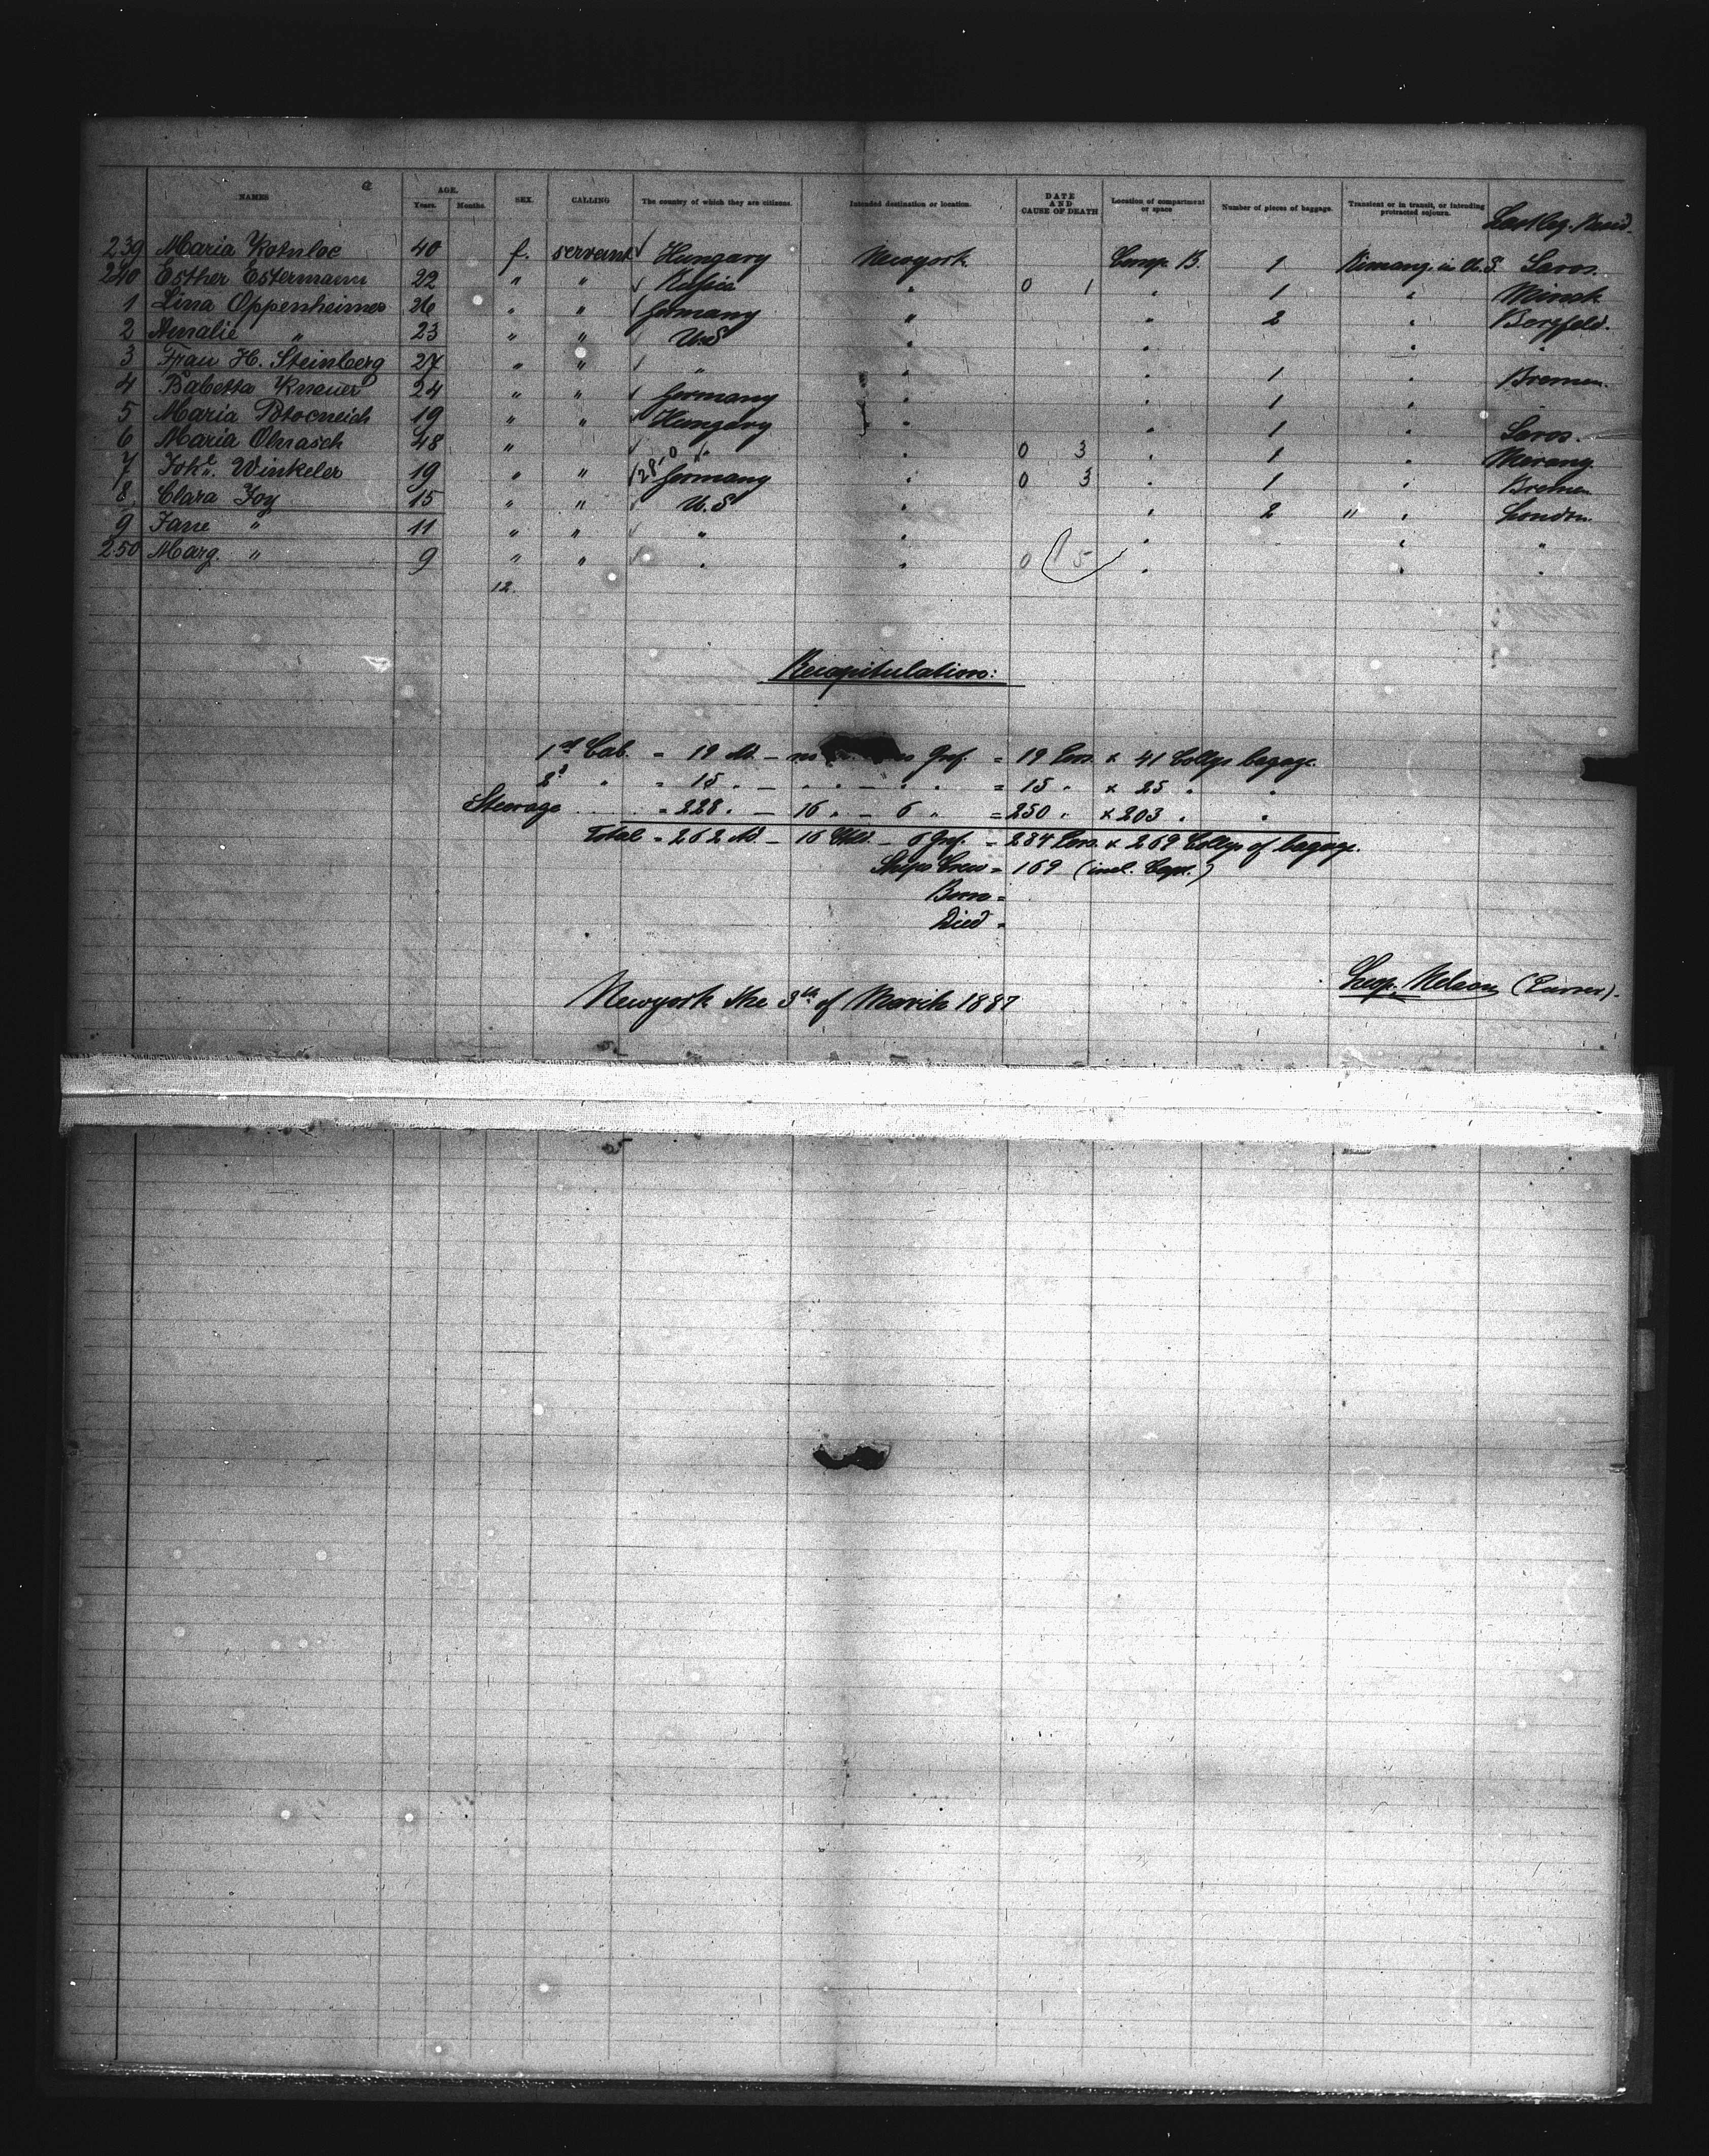 NAMES AGE. Years. Months. SEX. CALLING The country of which they are citizens. Intended destination or location. DATE AND CAUSE OF DEATH Location of compartment or space Number of pieces of baggage. Transient or in transit, or intending protracted sojourn. Last leg. Resid.
239 Maria 40 f. servant Hungary Newyork Comp. B. 1 in U.S. Saros.
240 Esther Estermann 22 " " Russia " 0 1 " 1 " Minsk
1 Lina Oppenheimer 26 " " Germany " " 2 "
2 Amalie " 23 " " U.S " " " "
3 Frau H. Steinberg 27 " " " " " 1 " Bremen.
4 Babetta Knauer 24 " " Germany " " 1 " "
5 Maria 19 " " Hungary " " 1 " Saros.
6 Maria 48 " " " 0 3 " 1 "
7 Winkeler 19 " " Germany " 0 3 " 1 " Bremen
8 Clara Joy 15 " " U.S " " 2 " " London.
9 Jane " 11 " " " " " " "
250 Marg. " 9 " " " " 0 5 " " "
12.
Recapitulation:
1st Cab. = 19 Ad. — no Inf. = 19 Pers. x 41 Collys bagage.
2d " = 15 " — " " — " " = 15 " x 25 " "
Steerage = 228 " — 16 " — 6 " = 250 " x 203 " "
Total = 262 Ad. — 16 Chld. — 6 Inf. = 284 Pers. x 269 Collys of bagage.
Ships Crew = 169 (incl. Capt.)
Born =
Died =
Nelson (Purser).
Newyork the 3th of March 1887